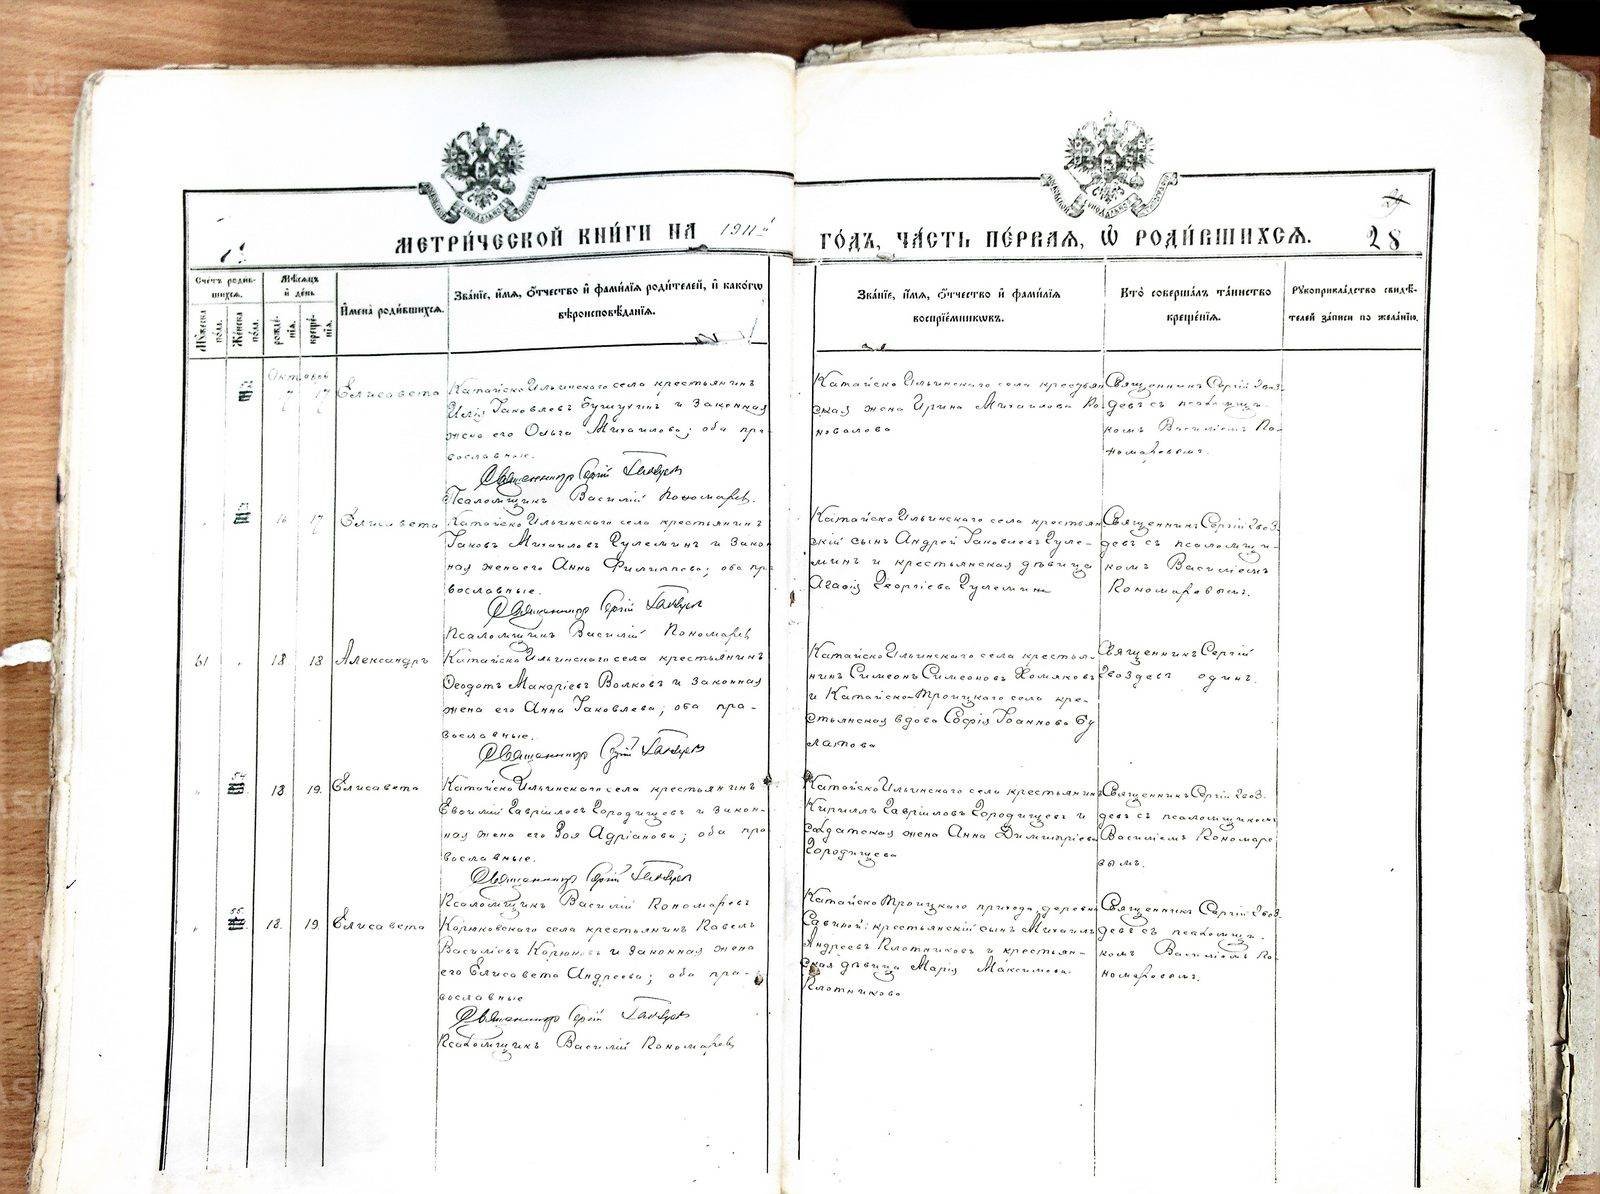 МЕТРИ́ЧЕСКОЙ КНИ́ГИ НА 1911й ГО́ДЪ, ЧА́СТЬ ПЕ́РВАЯ, Ѡ РОДИ́ВШИХСѦ.
28
Сче́тъ роди́в-
шихся.
Мѣ́сяцъ
и҆ де́нь
Му́жеска
по́ла.
Же́нска
по́ла.
рожде́-
нїя.
креще́-
нїя.
И҆мена̀ роди́вшихся.
Зва́нїе, и҆́мя, о҆́тчество и҆ фами́лїя роди́телей, и҆ како́гѡ
вѣроисповѣ́данїя.
Зва́нїе, и҆́мя, о҆́тчество и҆ фами́лїя
воспрїе́мникѡвъ.
Кто̀ соверша́лъ та́инство
креще́нїя.
Рукоприкла́дство свидѣ́-
телей за́писи по жела́нїю.
Октябрь
52
17
Елисавета
Катайско Ильинскаго села крестьянинъ
Илія Іаковлевъ и законная
жена его Ольга Михаилова; оба пра-
вославные.
Священникъ Сергій Гвоздевъ
Псаломщикъ Василій Пономаревъ.
Катайско Ильинскаго села крестьян-
ская жена Ирина Михаилова Ко-
новалова
Священникъ Сергій Гвоз-
девъ съ псаломщи-
комъ Василіемъ По-
номаревымъ.
53
16
17
Елисавета
Катайско Ильинскаго села крестьянинъ
Іаковъ Михаиловъ Гулеминъ и закон-
ная жена его Анна Филиппова; оба пра-
вославные.
Священникъ Сергій Гвоздевъ
Псаломщикъ Василій Пономаревъ
Катайско Ильинскаго села крестьян-
скій сынъ Андрей Іаковлевъ Гуле-
минъ и крестьянская дѣвица
Агафія Георгіева Гулемина
Священникъ Сергій Гвоз-
девъ съ псаломщи-
комъ Василіемъ
Пономаревымъ.
61
18
18
Александръ
Катайско Ильинскаго села крестьянинъ
Ѳеодотъ Макаріевъ Волковъ и законная
жена его Анна Іаковлева; оба пра-
вославные.
Священникъ Сергій Гвоздевъ
Катайско Ильинскаго села крестья-
нинъ Симеонъ Симеоновъ Хомяковъ
и Катайско Троицкаго села кре-
стьянская вдова Софія Іоаннова Бу
латова
Священникъ Сергій
Гвоздевъ одинъ.
54
18.
19.
Елисавета
Катайско Ильинскаго села крестьянинъ
Евѳимій Гавріиловъ Городищевъ и закон-
ная жена его Зоя Адріанова; оба пра
вославные.
Священникъ Сергій Гвоздевъ
Псаломщикъ Василій Пономаревъ
Катайско Ильинскаго села крестьянинъ
Кириллъ Гавріиловъ Городищевъ и
солдатская жена Анна Димитріева
Городищева
Священникъ Сергій Гвоз-
девъ съ псаломщикомъ
Василіемъ Пономаре
вымъ.
55.
18.
19
Елисавета
Корюковскаго села крестьянинъ Павелъ
Василіевъ Корюковъ и законная жена
его Елисавета Андреева; оба пра-
вославные
Священникъ Сергій Гвоздевъ
Псаломщикъ Василій Пономаревъ
Катайско Троицкаго прихода деревни
Савиной: крестьянскій сынъ Михаилъ
Андреевъ Плотниковъ и крестьян-
ская дѣвица Марія Максимова
Плотникова
Священникъ Сергій Гвоз-
девъ съ псаломщи-
комъ Василіемъ По-
номаревымъ.